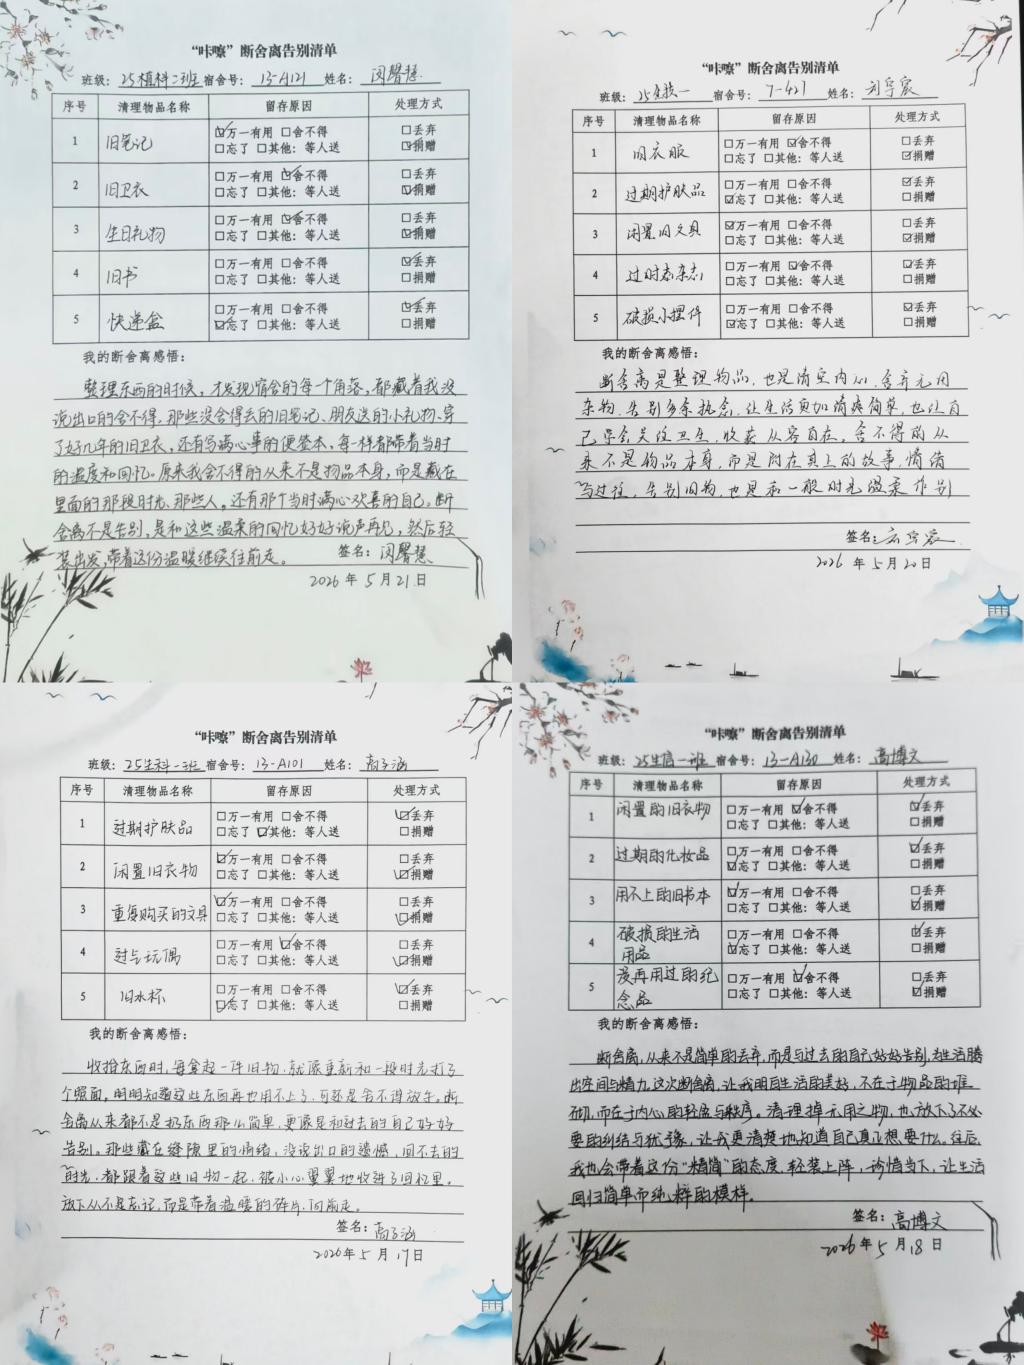 “咔嚓”断舍离告别清单
班级：25植科二班 宿舍号：13-A121 姓名：闵馨慧
序号 清理物品名称 留存原因 处理方式
1 旧笔记 ☑万一有用 □舍不得 □丢弃
□忘了 □其他：等人送 ☑捐赠
2 旧卫衣 □万一有用 ☑舍不得 □丢弃
□忘了 □其他：等人送 ☑捐赠
3 生日礼物 □万一有用 ☑舍不得 □丢弃
□忘了 □其他：等人送 ☑捐赠
4 旧书 □万一有用 □舍不得 ☑丢弃
□忘了 □其他：等人送 □捐赠
5 快递盒 □万一有用 □舍不得 ☑丢弃
☑忘了 □其他：等人送 □捐赠
我的断舍离感悟：
整理东西的时候，才发现宿舍的每一个角落，都藏着我没
说出口的舍不得，那些没舍得丢的旧笔记、朋友送的小礼物、穿
了好几年的旧卫衣，还有写满心事的便签本，每一样都带着当时
的温度和回忆。原来我舍不得的从来不是物品本身，而是藏在
里面的那段时光、那些人，还有那个当时满心欢喜的自己。断
舍离不是告别，是和这些温柔的回忆好好说声再见，然后轻
装出发，带着这份温暖继续往前走。
签名：闵馨慧
2026年5月21日
“咔嚓”断舍离告别清单
班级：25生技一 宿舍号：7-421 姓名：刘宇宸
序号 清理物品名称 留存原因 处理方式
1 旧衣服 □万一有用 ☑舍不得 □丢弃
□忘了 □其他：等人送 ☑捐赠
2 过期护肤品 □万一有用 □舍不得 ☑丢弃
☑忘了 □其他：等人送 □捐赠
3 闲置旧文具 ☑万一有用 □舍不得 □丢弃
□忘了 □其他：等人送 ☑捐赠
4 过时杂志 □万一有用 ☑舍不得 ☑丢弃
□忘了 □其他：等人送 □捐赠
5 破损小摆件 □万一有用 □舍不得 ☑丢弃
☑忘了 □其他：等人送 □捐赠
我的断舍离感悟：
断舍离是整理物品，也是清空内心，舍弃无用
杂物，告别多余执念，让生活更加清爽简单，也让自
己宿舍关注卫生，收获从容自在。舍不得的从
来不是物品本身，而是附在其上的故事，情绪
与过往，告别旧物，也是和一般时光温柔作别
签名：刘宇宸
2026年5月20日
“咔嚓”断舍离告别清单
班级：25生科一班 宿舍号：13-A101 姓名：高子涵
序号 清理物品名称 留存原因 处理方式
1 过期护肤品 □万一有用 □舍不得 ☑丢弃
□忘了 ☑其他：等人送 □捐赠
2 闲置旧衣物 ☑万一有用 □舍不得 □丢弃
□忘了 □其他：等人送 ☑捐赠
3 重复购买的文具 ☑万一有用 □舍不得 □丢弃
□忘了 □其他：等人送 ☑捐赠
4 过气玩偶 □万一有用 ☑舍不得 □丢弃
□忘了 □其他：等人送 ☑捐赠
5 旧水杯 □万一有用 □舍不得 ☑丢弃
☑忘了 □其他：等人送 □捐赠
我的断舍离感悟：
收拾东西时，每拿起一件旧物，就像重新和一段时光打了
个照面，明明知道这些东西再也用不上了，可还是舍不得放手。断
舍离从来都不是扔东西那么简单，更像是和过去的自己好好
告别。那些藏在缝隙里的情绪，没说出口的遗憾，回不去的
时光，都跟着这些旧物一起，被小心翼翼地收进了回忆里。
放下从不是忘记，而是带着温暖的碎片，向前走。
签名：高子涵
2026年5月17日
“咔嚓”断舍离告别清单
班级：25生信一班 宿舍号：13-A130 姓名：高博文
序号 清理物品名称 留存原因 处理方式
1 闲置的旧衣物 □万一有用 ☑舍不得 ☑丢弃
□忘了 □其他：等人送 □捐赠
2 过期的化妆品 □万一有用 □舍不得 ☑丢弃
☑忘了 □其他：等人送 □捐赠
3 用不上的旧书本 ☑万一有用 □舍不得 □丢弃
□忘了 □其他：等人送 ☑捐赠
4 破损的生活用品 □万一有用 □舍不得 ☑丢弃
☑忘了 □其他：等人送 □捐赠
5 没再用过的纪念品 □万一有用 ☑舍不得 □丢弃
□忘了 □其他：等人送 ☑捐赠
我的断舍离感悟：
断舍离，从来不是简单的丢弃，而是与过去的自己好好告别，为生活腾
出空间与精力。这次断舍离，让我明白生活的美好，不在于物品的堆
砌，而在于内心的轻盈与秩序。清理掉无用之物，也放下了不必
要的纠结与犹豫，让我更清楚地知道自己真正想要什么。往后，
我也会带着这份“精简”的态度，轻装上阵，珍惜当下，让生活
回归简单而纯粹的模样。
签名：高博文
2026年5月18日